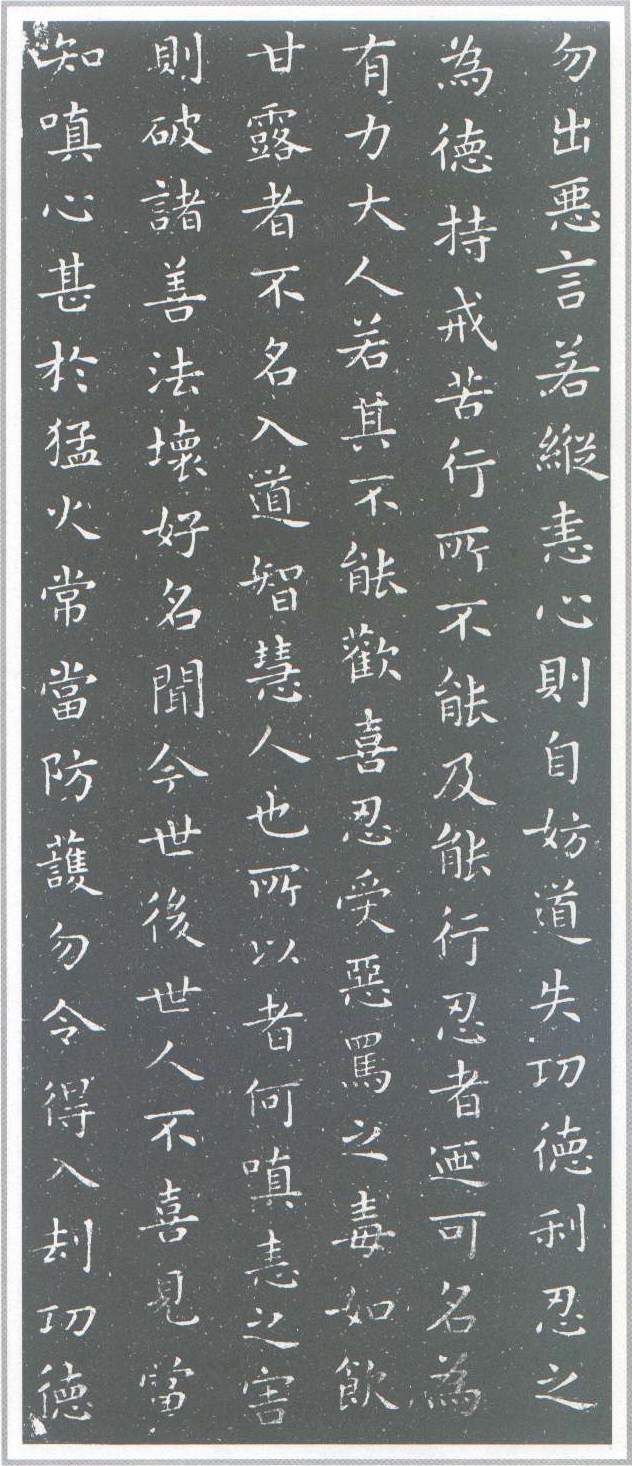 勿出悪言若縱恚心則自妨道失功徳利忍之
為徳持戒苦行所不能及能行忍者迺可名為
有力大人若其不能歡喜忍受惡罵之毒如飲
甘露者不名入道智慧人也所以者何嗔恚之害
則破諸善法壞好名聞今世後世人不喜見當
知嗔心甚於猛火常當防護勿令得入刦功徳